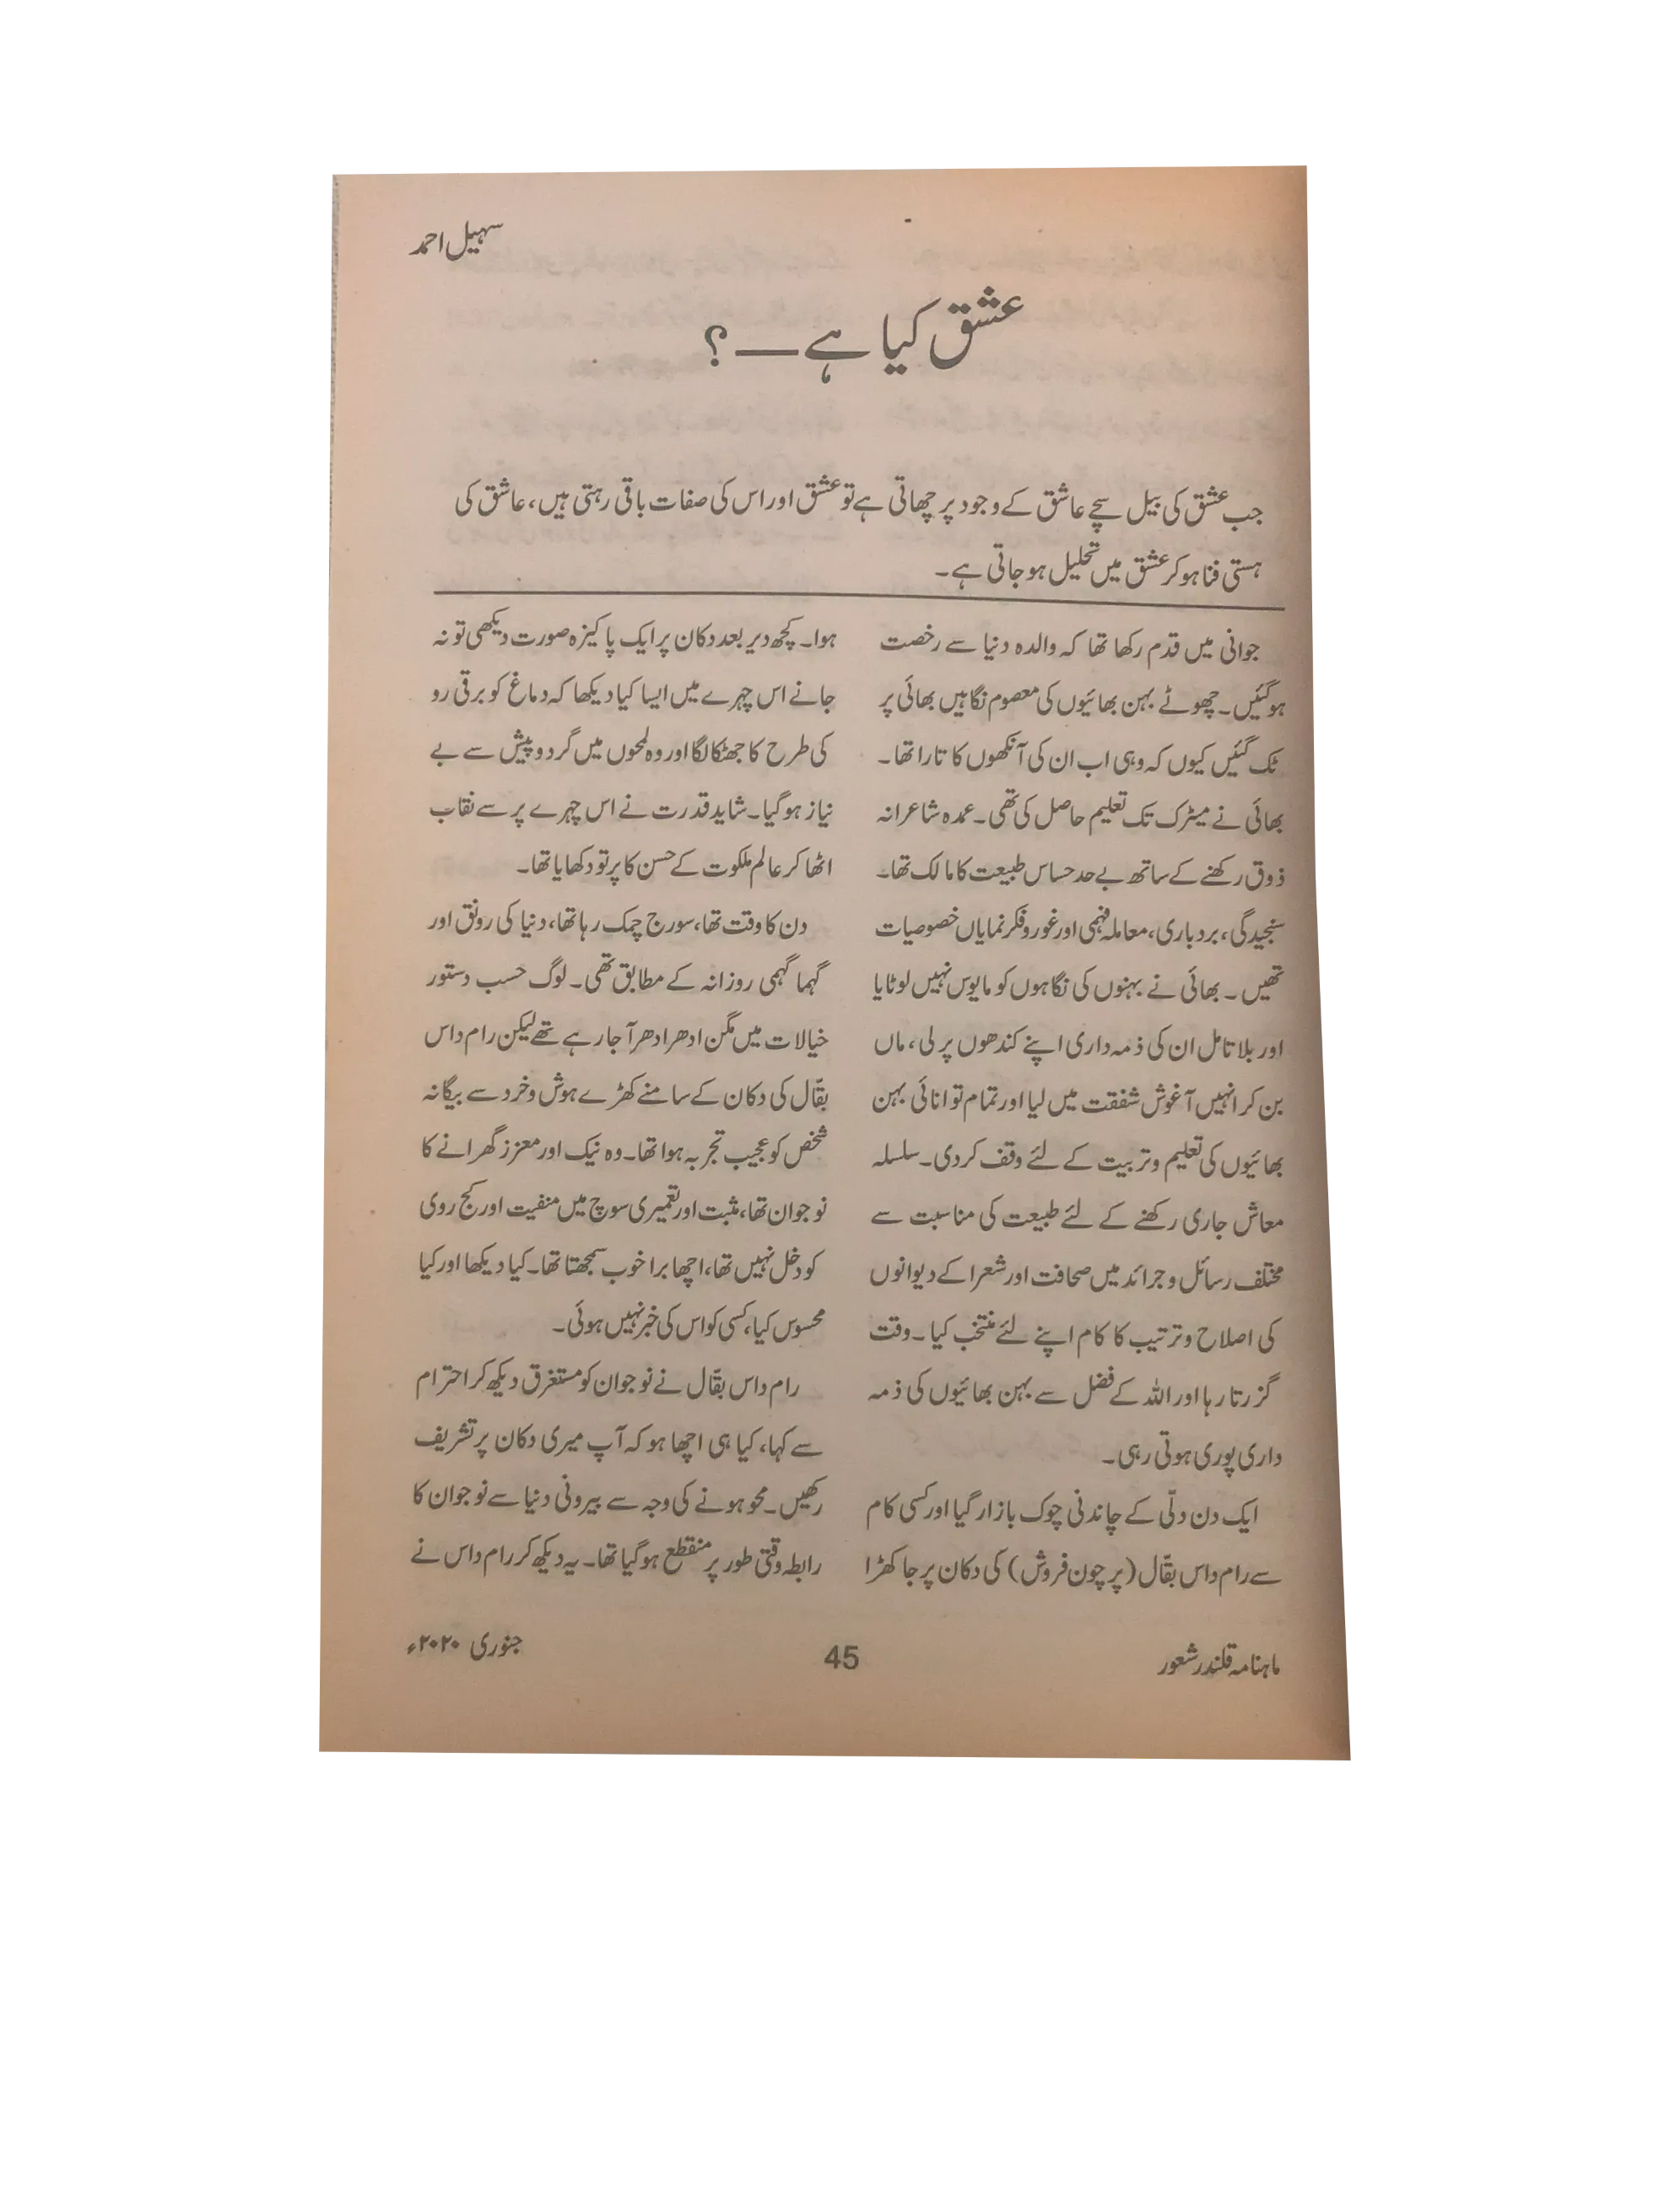 سہیل احمد
عشق کیا ہے — ؟
جب عشق کی بیل سچے عاشق کے وجود پر چھاتی ہے تو عشق اور اس کی صفات باقی رہتی ہیں، عاشق کی
ہستی فنا ہو کر عشق میں تحلیل ہو جاتی ہے۔
جوانی میں قدم رکھا تھا کہ والدہ دنیا سے رخصت
ہو گئیں۔ چھوٹے بہن بھائیوں کی معصوم نگاہیں بھائی پر
ٹک گئیں کیوں کہ وہی اب ان کی آنکھوں کا تارا تھا۔
بھائی نے میٹرک تک تعلیم حاصل کی تھی۔ عمدہ شاعرانہ
ذوق رکھنے کے ساتھ بے حد حساس طبیعت کا مالک تھا۔
سنجیدگی، بردباری، معاملہ فہمی اور غور و فکر نمایاں خصوصیات
تھیں۔ بھائی نے بہنوں کی نگاہوں کو مایوس نہیں لوٹایا
اور بلا تامل ان کی ذمہ داری اپنے کندھوں پر لی، ماں
بن کر انہیں آغوش شفقت میں لیا اور تمام توانائی بہن
بھائیوں کی تعلیم و تربیت کے لئے وقف کر دی۔ سلسلہ
معاش جاری رکھنے کے لئے طبیعت کی مناسبت سے
مختلف رسائل و جرائد میں صحافت اور شعرا کے دیوانوں
کی اصلاح و ترتیب کا کام اپنے لئے منتخب کیا۔ وقت
گزرتا رہا اور اللہ کے فضل سے بہن بھائیوں کی ذمہ
داری پوری ہوتی رہی۔
ایک دن دلّی کے چاندنی چوک بازار گیا اور کسی کام
سے رام داس بقّال (پرچون فروش) کی دکان پر جا کھڑا
ہوا۔ کچھ دیر بعد دکان پر ایک پاکیزہ صورت دیکھی تو نہ
جانے اس چہرے میں ایسا کیا دیکھا کہ دماغ کو برقی رو
کی طرح کا جھٹکا لگا اور وہ لمحوں میں گرد و پیش سے بے
نیاز ہو گیا۔ شاید قدرت نے اس چہرے پر سے نقاب
اٹھا کر عالم ملکوت کے حسن کا پرتو دکھایا تھا۔
دن کا وقت تھا، سورج چمک رہا تھا، دنیا کی رونق اور
گہما گہمی روزانہ کے مطابق تھی۔ لوگ حسب دستور
خیالات میں مگن ادھر ادھر آ جا رہے تھے لیکن رام داس
بقّال کی دکان کے سامنے کھڑے ہوش و خرد سے بیگانہ
شخص کو عجیب تجربہ ہوا تھا۔ وہ نیک اور معزز گھرانے کا
نوجوان تھا، مثبت اور تعمیری سوچ میں منفیت اور کج روی
کو دخل نہیں تھا، اچھا برا خوب سمجھتا تھا۔ کیا دیکھا اور کیا
محسوس کیا، کسی کو اس کی خبر نہیں ہوئی۔
رام داس بقّال نے نوجوان کو مستغرق دیکھ کر احترام
سے کہا، کیا ہی اچھا ہو کہ آپ میری دکان پر تشریف
رکھیں۔ محو ہونے کی وجہ سے بیرونی دنیا سے نوجوان کا
رابطہ وقتی طور پر منقطع ہو گیا تھا۔ یہ دیکھ کر رام داس نے
ماہنامہ قلندر شعور
45
جنوری ۲۰۲۰ء